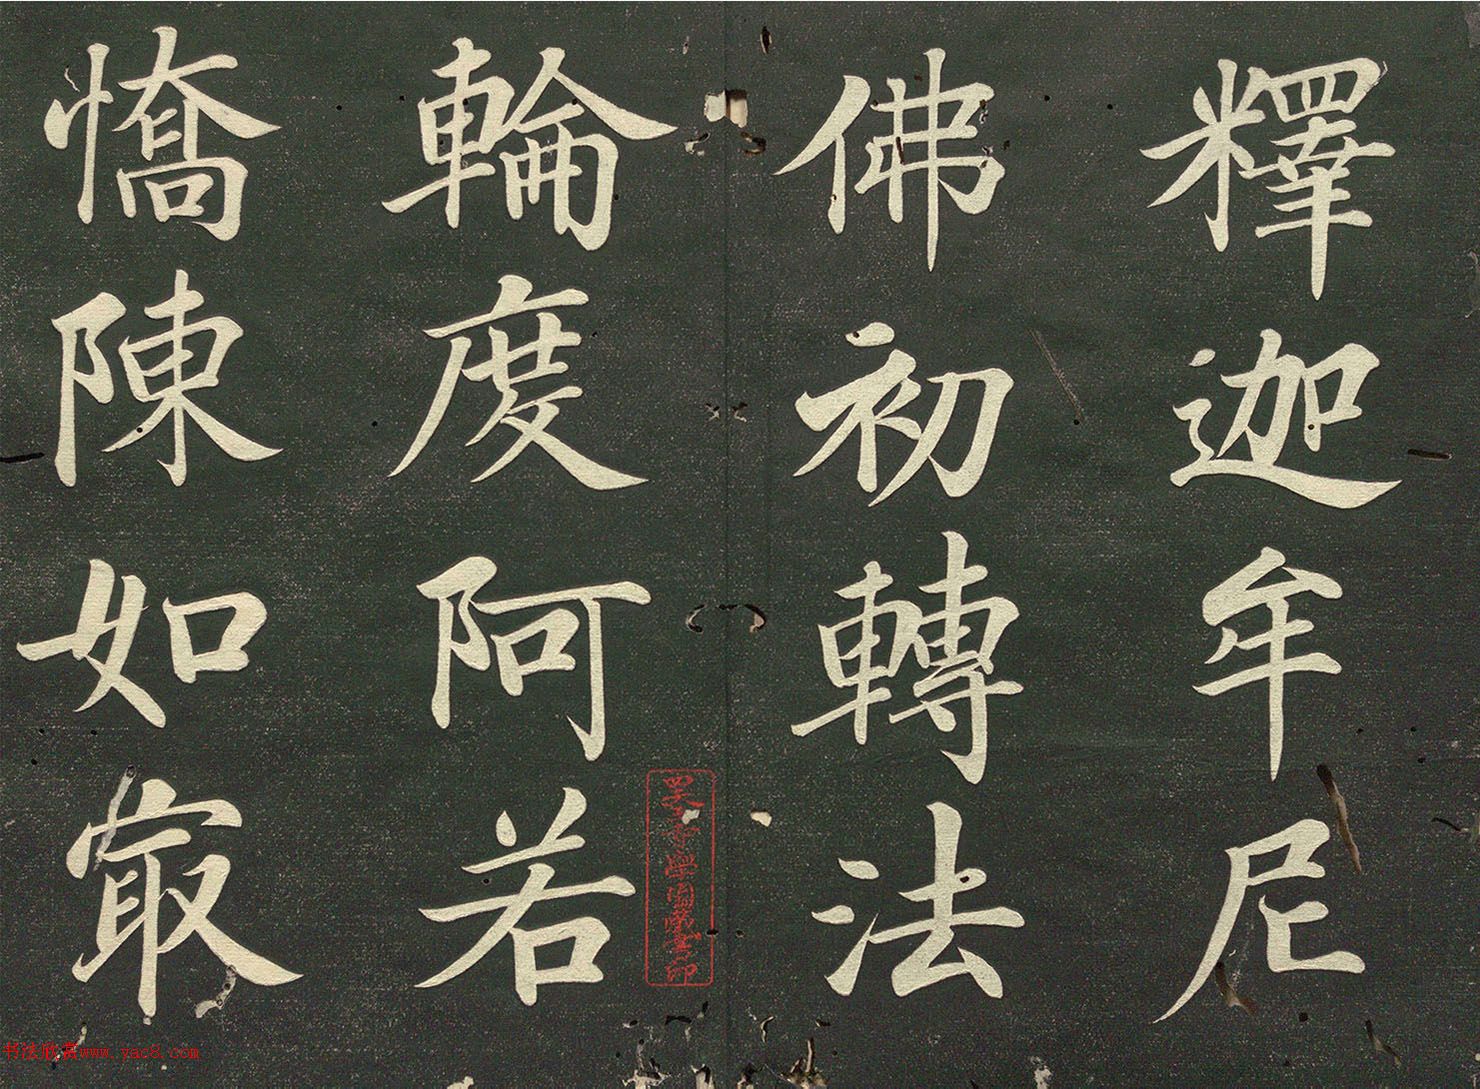 釋迦牟尼
佛初轉法
輪度阿若
憍陳如㝡
书法欣赏www.yac8.com